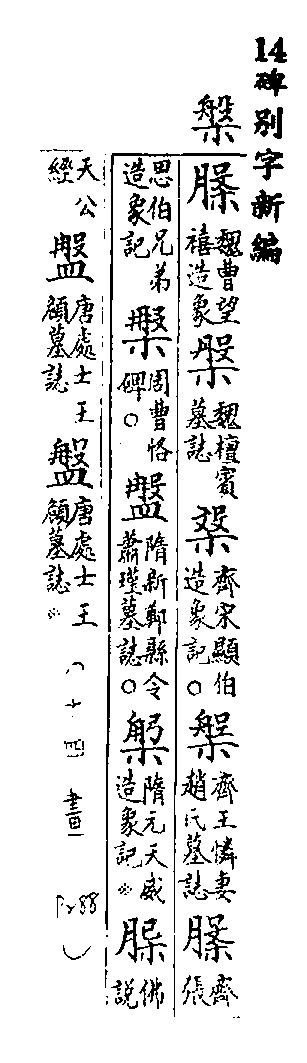 14碑別字新編
槃
魏曹望禧造象 槃 魏檀賓墓誌 齊宋顯伯造象記○ 槃 齊王憐妻趙氏墓誌 齊張
思伯兄弟造象記 槃 周曹恪碑○ 盤 隋新鄭縣令蕭瑾墓誌○ 隋元天威造象記※ 佛說
天公經 盤 唐處士王顧墓誌 盤 唐處士王顧墓誌※ (十四畫 P288)